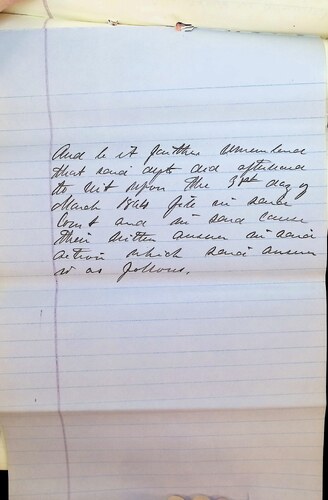 And be it further remembered
that said defts did afterward
to wit upon the 31st day of
March 1864 file in said
Court and in said cause
their written answer in said
action which said answer
is as follows.